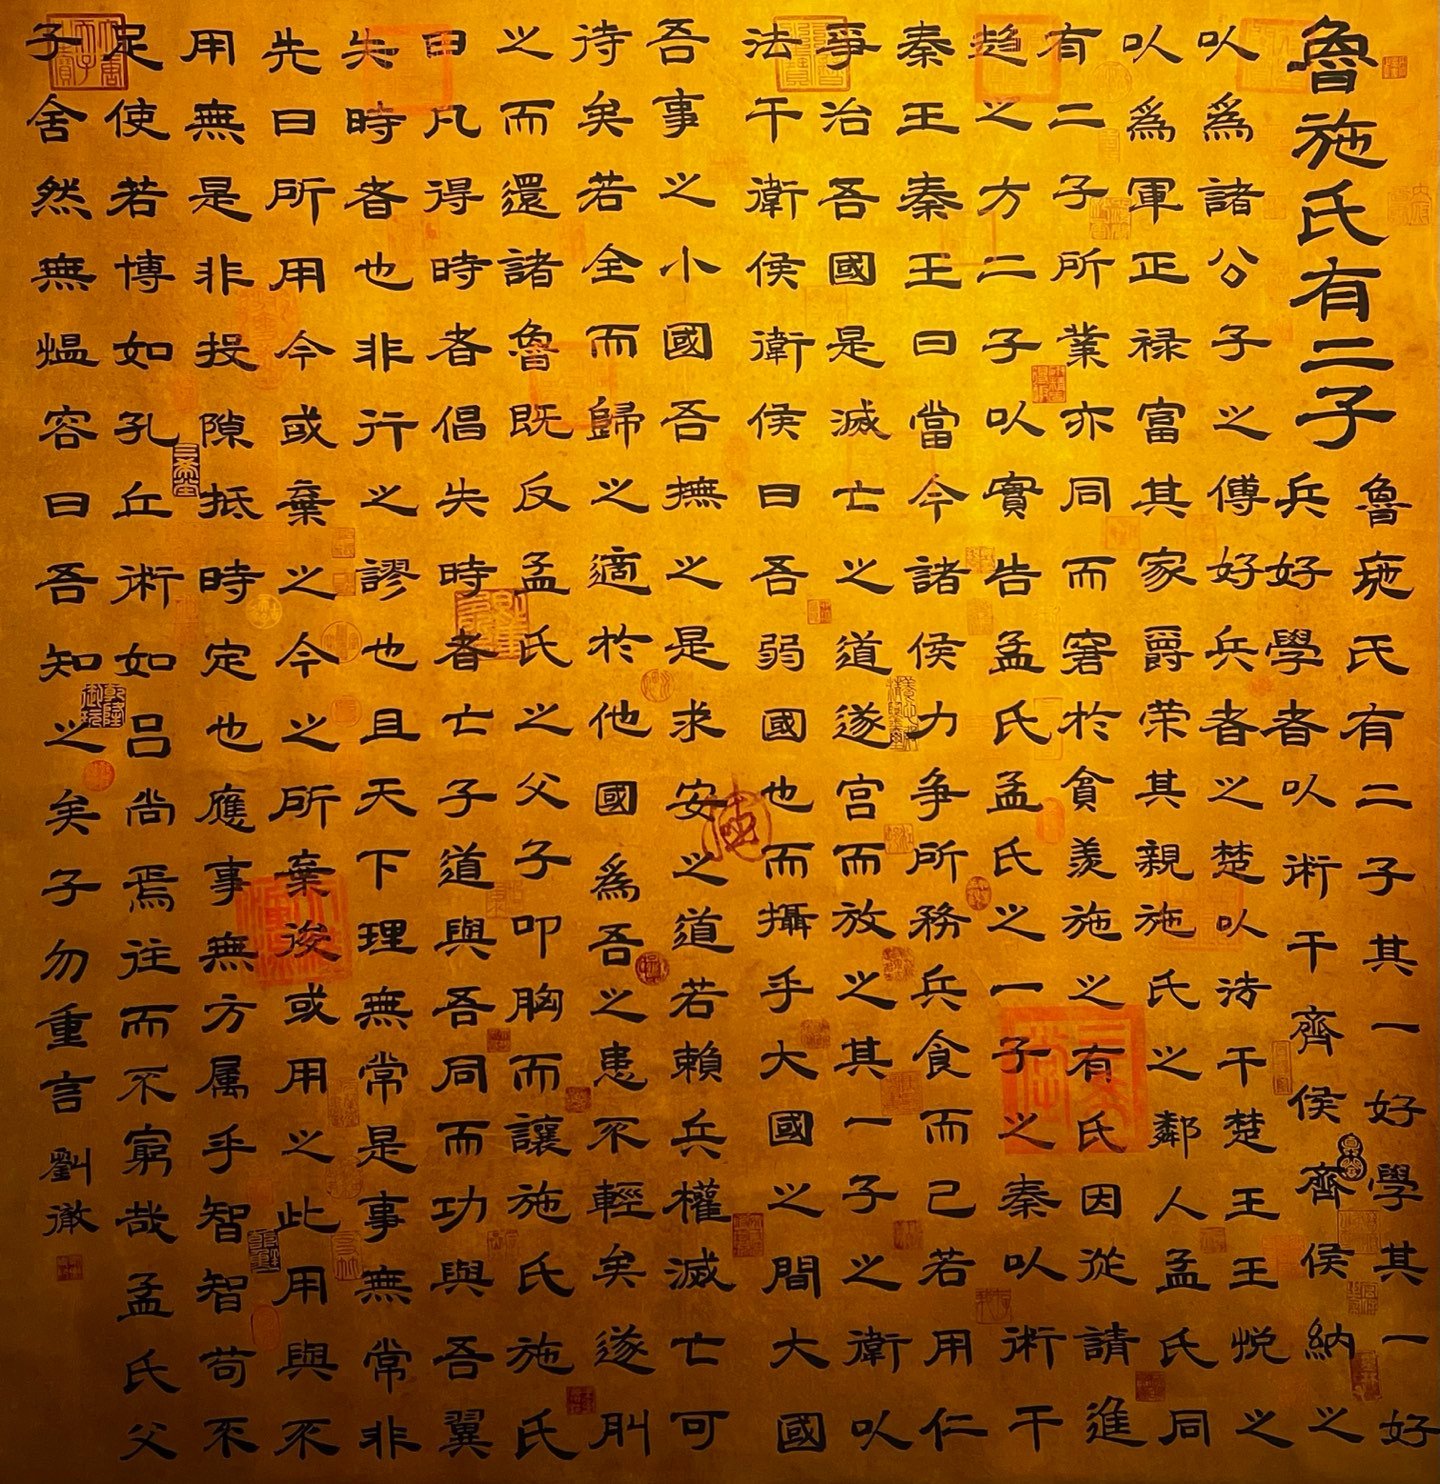 魯施氏有二子
魯施氏有二子其一好學其一好
兵好學者以術干齊侯齊侯納之
以爲諸公子之傅好兵者之楚以法干楚王王悅之
以爲軍正禄富其家爵荣其親施氏之鄰人孟氏同
有二子所業亦同而窘於貧羨施之有氏因從請進
趨之方二子以實告孟氏孟氏之一子之秦以術干
秦王秦王曰當今諸侯力爭所務兵食而已若用仁
爭治吾國是滅亡之道遂宫而放之其一子之衛以
法干衛侯衛侯曰吾弱國也而攝乎大國之間大國
吾事之小國吾撫之是求安之道若賴兵權滅亡可
待矣若全而歸之適於他國爲吾之患不輕矣遂刖
之而還諸魯既反孟氏之父子叩胸而讓施氏施氏
曰凡得時者倡失時者亡子道與吾同而功與吾翼
失時者也非行之謬也且天下理無常是事無常非
先曰所用今或棄之今之所棄後或用之此用與不
用無是非投隙抵時定也應事無方属乎智智苟不
足使若博如孔丘術如吕尚焉往而不窮哉孟氏父
子舍然無熅容曰吾知之矣子勿重言劉徹